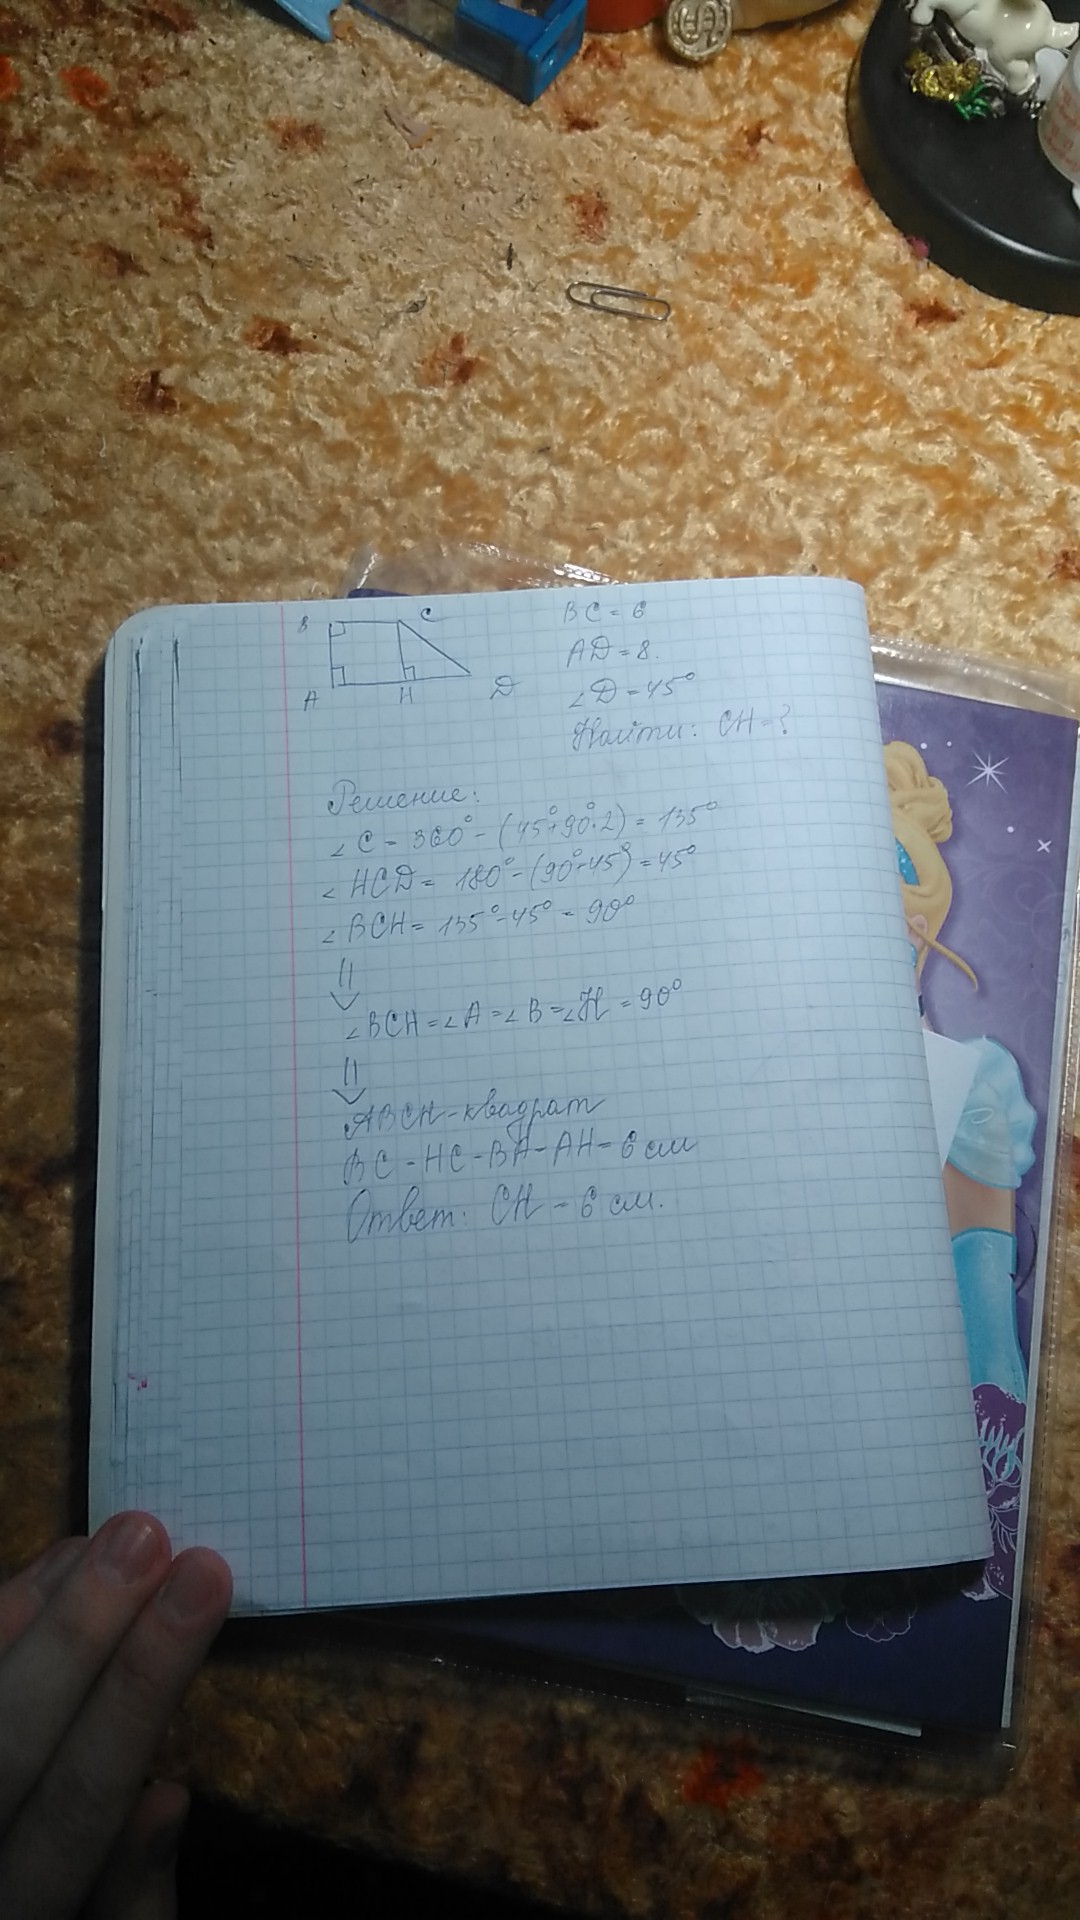 B C
A H D
BC = 6
AD = 8.
∠D = 45°
Найти: CH = ?
Решение:
∠C = 360° - (45°+90°·2) = 135°
∠HCD = 180° - (90°+45°) = 45°
∠BCH = 135° - 45° = 90°
⇓
∠BCH = ∠A = ∠B = ∠H = 90°
⇓
ABCH - квадрат
BC = HC = BA = AH = 6 см
Ответ: CH = 6 см.